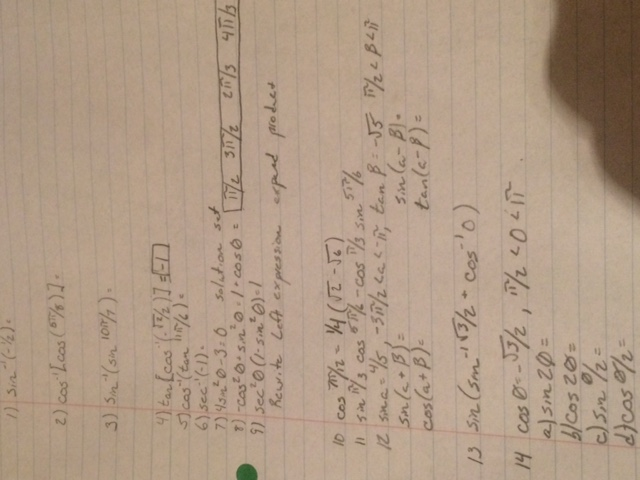 1) sin⁻¹(-½)=
2) cos⁻¹[cos(5π/6)]=
3) sin⁻¹(sin 10π/7)=
4) tan[cos⁻¹(-√2/2)]=-1
5) cos⁻¹(tan 11π/6)=
6) sec⁻¹(-1)=
7) 4sin²θ-3=0 solution set
8) -cos²θ+sin²θ-1+cosθ= π/2 3π/2 2π/3 4π/3
9) sec²θ(1-sin²θ)=1
Rewrite Left expression expand product
10 cos 7π/12 = 1/4(√2-√6)
11 sin π/3 cos 5π/6 - cos π/3 sin 5π/6
12 sin a=4/5, -3π/2<a<-π, tan β=-√5 π/2<β<π
sin(a+β)= sin(a-β)=
cos(a+β)= tan(a-β)=
13 sin(sin⁻¹√3/2 + cos⁻¹0)
14 cosθ=-√3/2, π/2<θ<π.
a) sin2θ=
b) cos2θ=
c) sin θ/2=
d) cos θ/2=